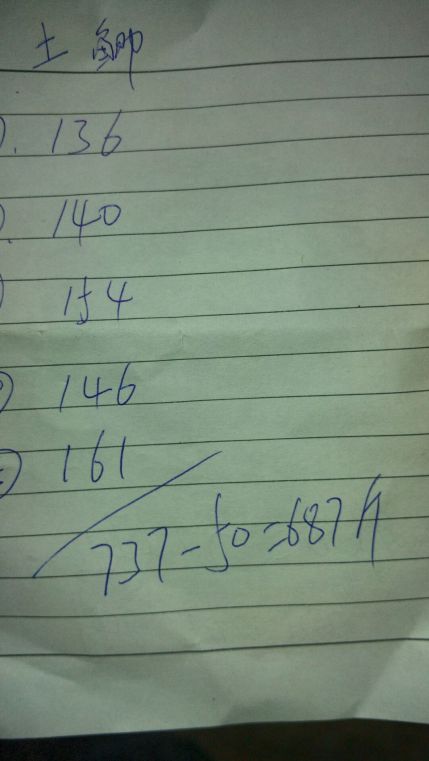 土鲫
136
140
154
146
161
737-50=687斤